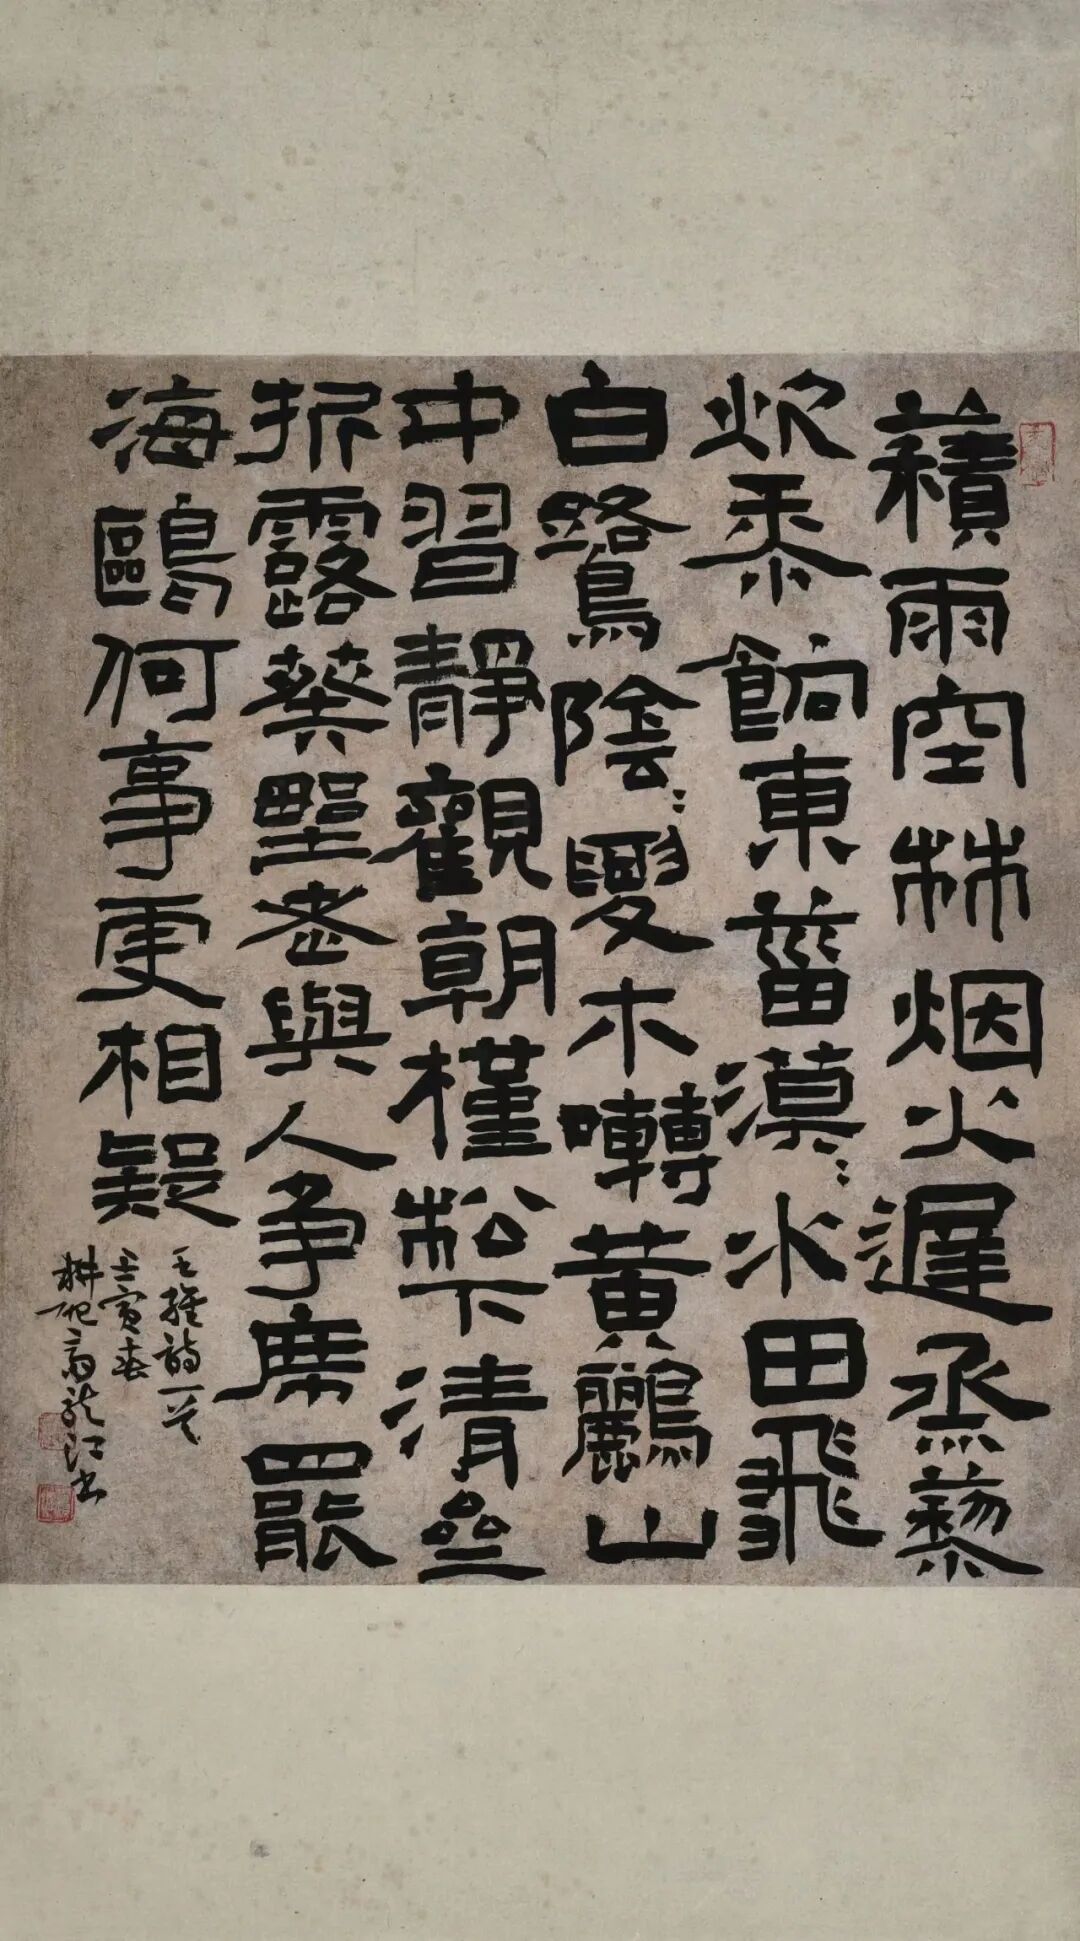 積雨空林烟火遲蒸藜
炊黍餉東菑漠〻水田飛
白鷺陰〻夏木囀黃鸝山
中習靜觀朝槿松下清齋
折露葵野老與人争席罷
海鷗何事更相疑
王維詩一首
壬寅春
耕硯龍江書